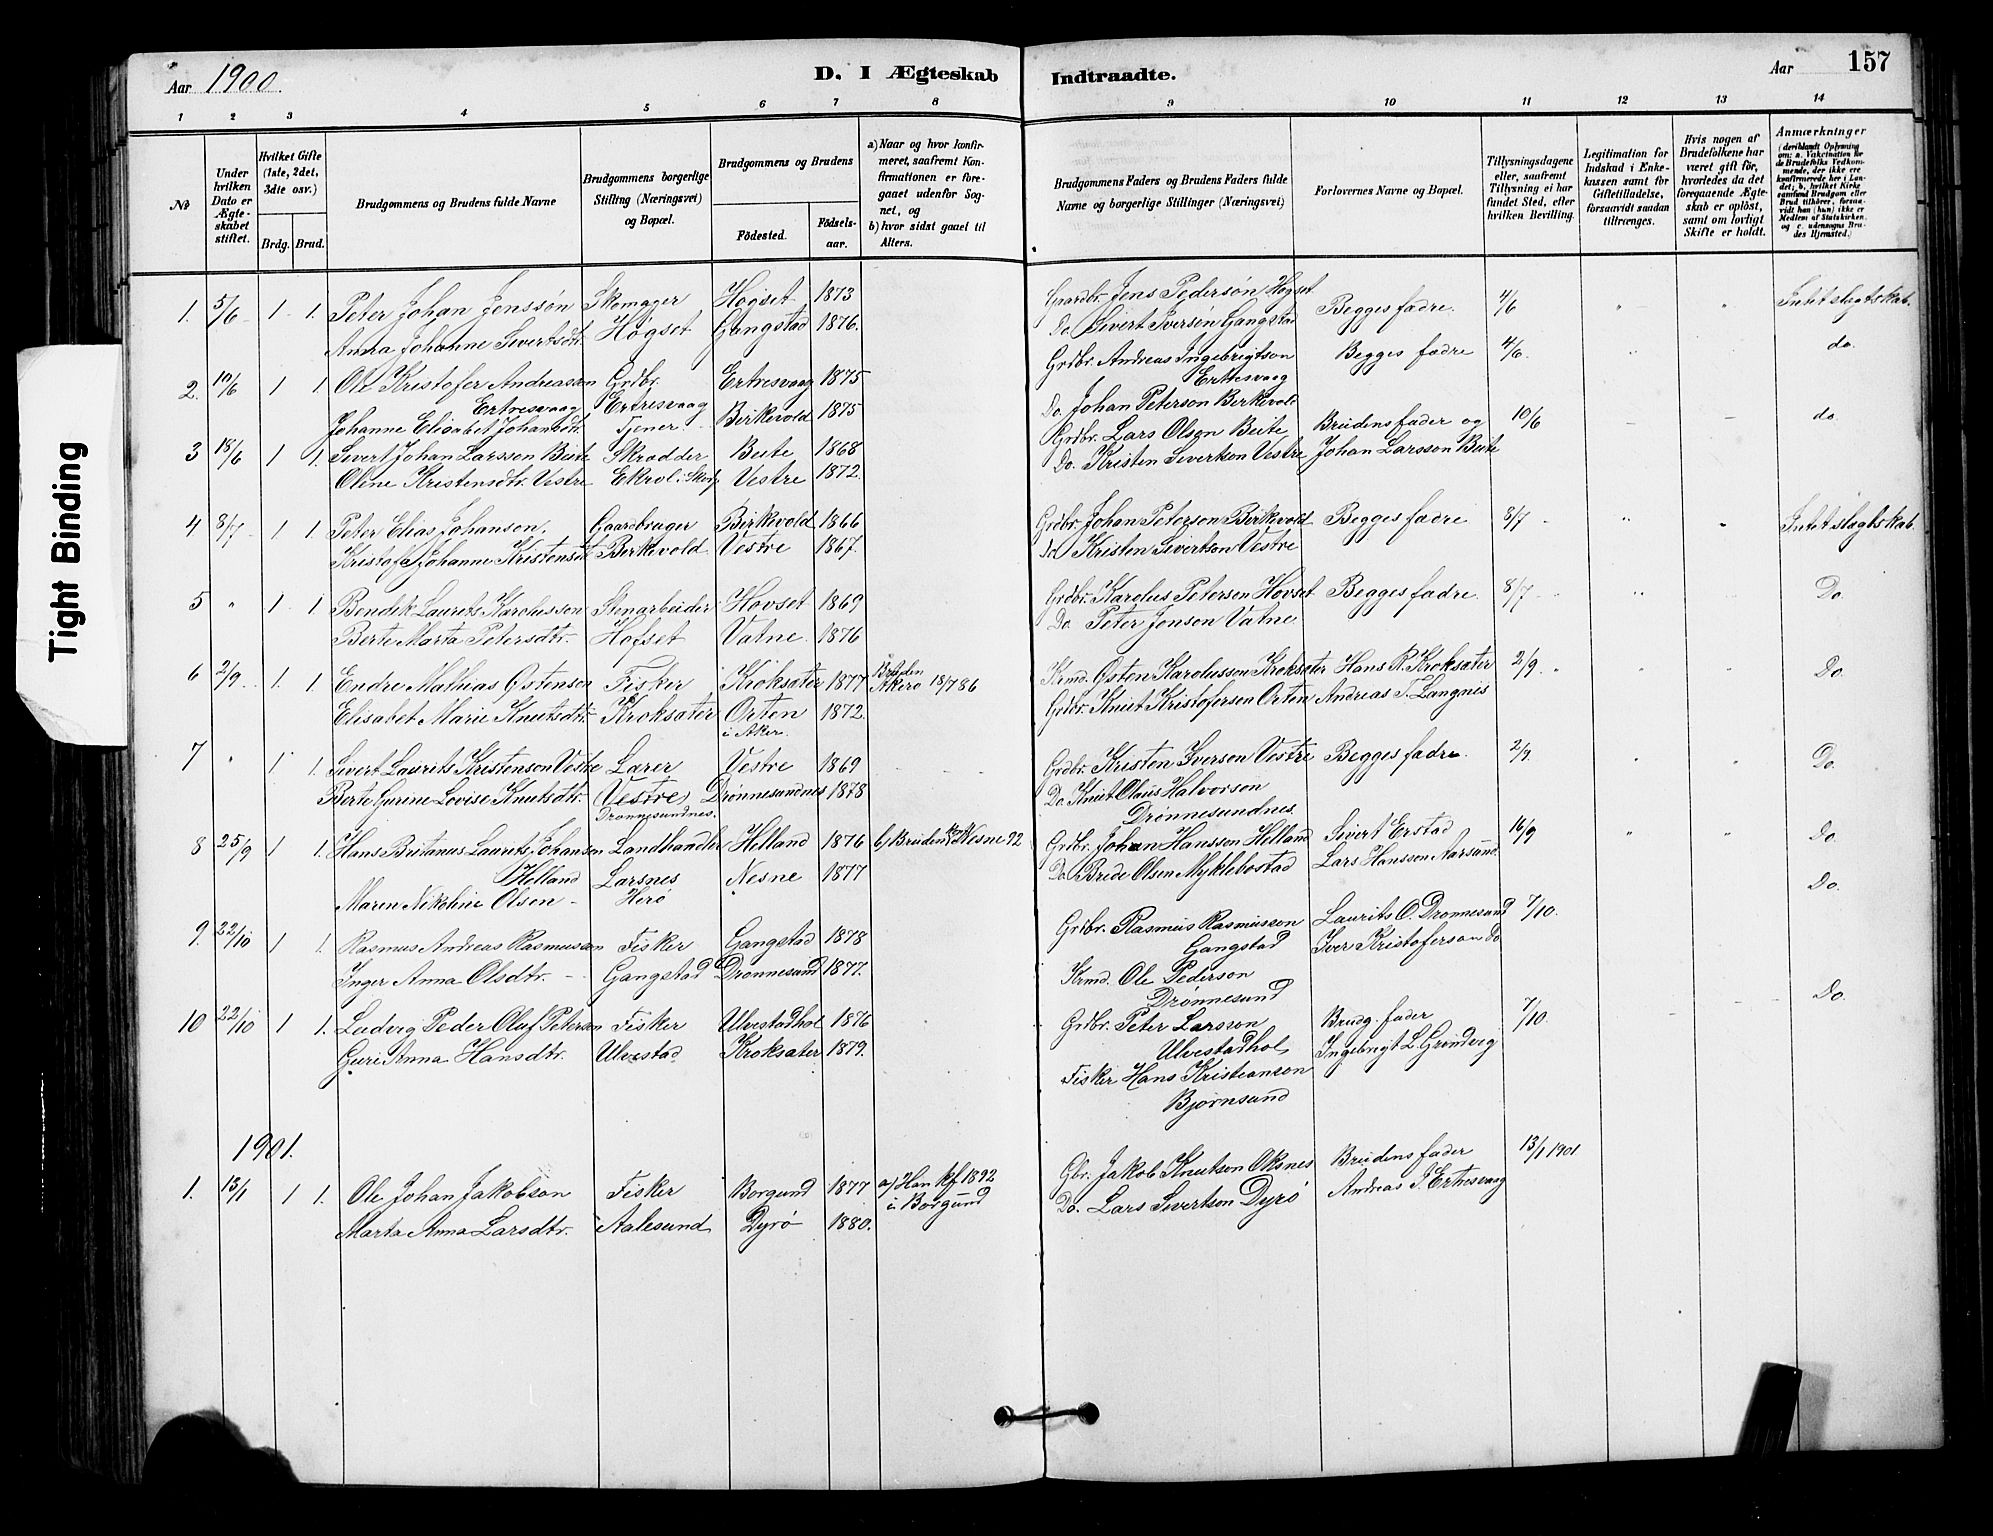 Aar 1900.
D. I Ægteskab Indtraadte.
Aar 157
1 2 3 4 5 6 7 8 9 10 11 12 13 14
No
Under hvilken Dato er Ægteskabet stiftet.
Hvilket Gifte (1ste, 2det, 3die osv.)
Brdg. Brud.
Brudgommens og Brudens fulde Navne
Brudgommens borgerlige Stilling (Næringsvei) og Bopæl.
Brudgommens og Brudens
Födested. Födselsaar.
a) Naar og hvor konfirmeret, saafremt Konfirmationen er foregaaet udenfor Sognet, og
b) hvor sidst gaaet til Alters.
Brudgommens Faders og Brudens Faders fulde Navne og borgerlige Stillinger (Næringsvei)
Forlovernes Navne og Bopæl.
Tillysningsdagene eller, saafremt Tillysning ei har fundet Sted, efter hvilken Bevilling.
Legitimation for Indskud i Enkekassen samt for Giftetilladelse, forsaavidt saadan tiltrænges.
Hvis nogen af Brudefolkene har været gift för, hvorledes da det foregaaende Ægteskab er oplöst, samt om lovligt Skifte er holdt.
Anmærkninger (deriblandt Oplysning om: a. Vakcination for de Brudefolks Vedkommende, der ikke ere konfirmerede her i Landet; b. hvilket Kirkesamfund Brudgom eller Brud tilhörer, forsaavidt han (hun) ikke er Medlem af Statskirken. og c. udensogns Brudes Hjemsted.)
1. 5/6 1 1. Peter Johan Jenssön Skomager Högset 1873 Gaardbr. Jens Pedersön Högset Begges fadre. 4/6 " " Intet slegtskab.
Anna Johanne Sivertsdtr. Högset Gangstad 1876. Do Sivert Iversön Gangstad
2. 10/6 1 1. Ole Kristofer Andreasson Grdbr. Ertresvaag 1875 Grdbr. Andreas Ingebrigtson Begges fadre 4/6. " " do.
Ertresvaag Ertresvaag Ertresvaag
Johanne Elisabet Johansdtr. Tjener Birkevold 1875 Do. Johan Peterson Berkevold
3 18/6 1 1. Sivert Johan Larsson Beite Skradder Beite 1868 Grdbr. Lars Olsen Beite Brudens fader og 10/6 do.
Oline Kristensdtr. Vestre Ekrol. Vestre 1872. Do. Kristen Sivertson Vestre Johan Larsson Beite
4 8/7 1 1. Peter Elias Johanson, Gaardbruger Birkevold 1866 Grdbr. Johan Peterson Birkevold Begges fadre 8/7 " " Intet slagtskab.
Johanne Kristensdtr. Berkevold Vestre 1867. Do Kristen Sivertson Vestre
5 " 1 1 Bendik Laurits Karolusson Stenarbeider Hovset 1869 Grdbr. Karolus Petersen Hovset Begges fadre. 8/7 " " Do.
Berte Marta Petersdtr. Hofset Vatne. 1876 Do. Peter Jonson Vatne
6 2/9 1. 1. Endre Mathias Ostenson Fisker Kroksater 1877 Bruden Akerö 18/7 86 Krmd. Osten Karolusson Kroksater Hans R. Kroksater 2/9 " " Do.
Elisabet Marie Knutsdtr. Kroksater Orten i Aker. 1872. Grdbr. Knut Kristofersen Orten Andreas T. Langnis
7 " 1 1. Sivert Laurits Kristenson Vestre Larer Vestre 1869 Grdbr. Kristen Iverson Vestre Begges fadre. 2/9. " " Do.
Berte Gurine Lovise Knutsdtr. (Vestre) Drönnesundnes 1878 Do. Knut Olaus Halvorson
Drönnesundnes. Drönnesundnes.
8 25/9 1 1. Hans Britanus Laurits Johansen Landhandler Helland 1876 b) Bruden Nesne 92 Grdbr. Johan Hansson Helland Sivert Erstad 16/9 " " Do.
Helland Larsnes Nesne 1877 Do Brede Olsen Myklebostad Lars Hansson Aarsund.
Maren Nikoline Olsen Herö Do.
9. 22/10 1 1. Rasmus Andreas Rasmusson Fisker Gangstad 1878 Grdbr. Rasmus Rasmusson Laurits O. Drönnesund 7/10.
Gangstad Iver Kristoferson Do
Inger Anna Olsdtr. Gangstad Drönnesund 1877. Krmd. Ole Pederson
Drönnesund Do.
10 22/10 1 1. Ludvig Peder Oluf Peterson Fisker Ulvestadhol 1876 Grdbr. Peter Larsson Brudg. fader 7/10.
Guri Anna Hansdtr. Ulvestad Kroksater 1879. Ulvestadhol, Ingebrigt L. Gröndvig
Fisker Hans Kristianson
Björnsund
1901.
1. 13/1 1 1. Ole Johan Jakobson Fisker Borgund 1877 a) Han kf 1892 i Borgund Gbr. Jakob Knutson Oksnes Brudens fader 13/1 1901
Marta Anna Larsdtr. Aalesund Dyrö 1880. Do. Lars Sivertson Dyrö Andreas I. Ertresvaag
Tight Binding